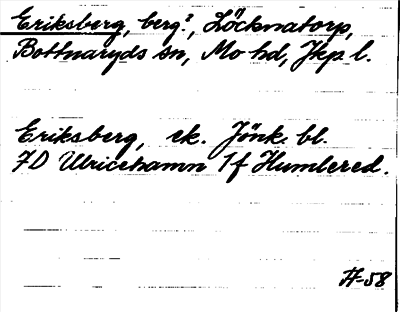 Eriksberg, berg?, Löcknatorp,
Bottnaryds sn, Mo hd, Jkp l.
Eriksberg, ek. Jönk. bl.
7D Ulricehamn 1f Humlered.
-58